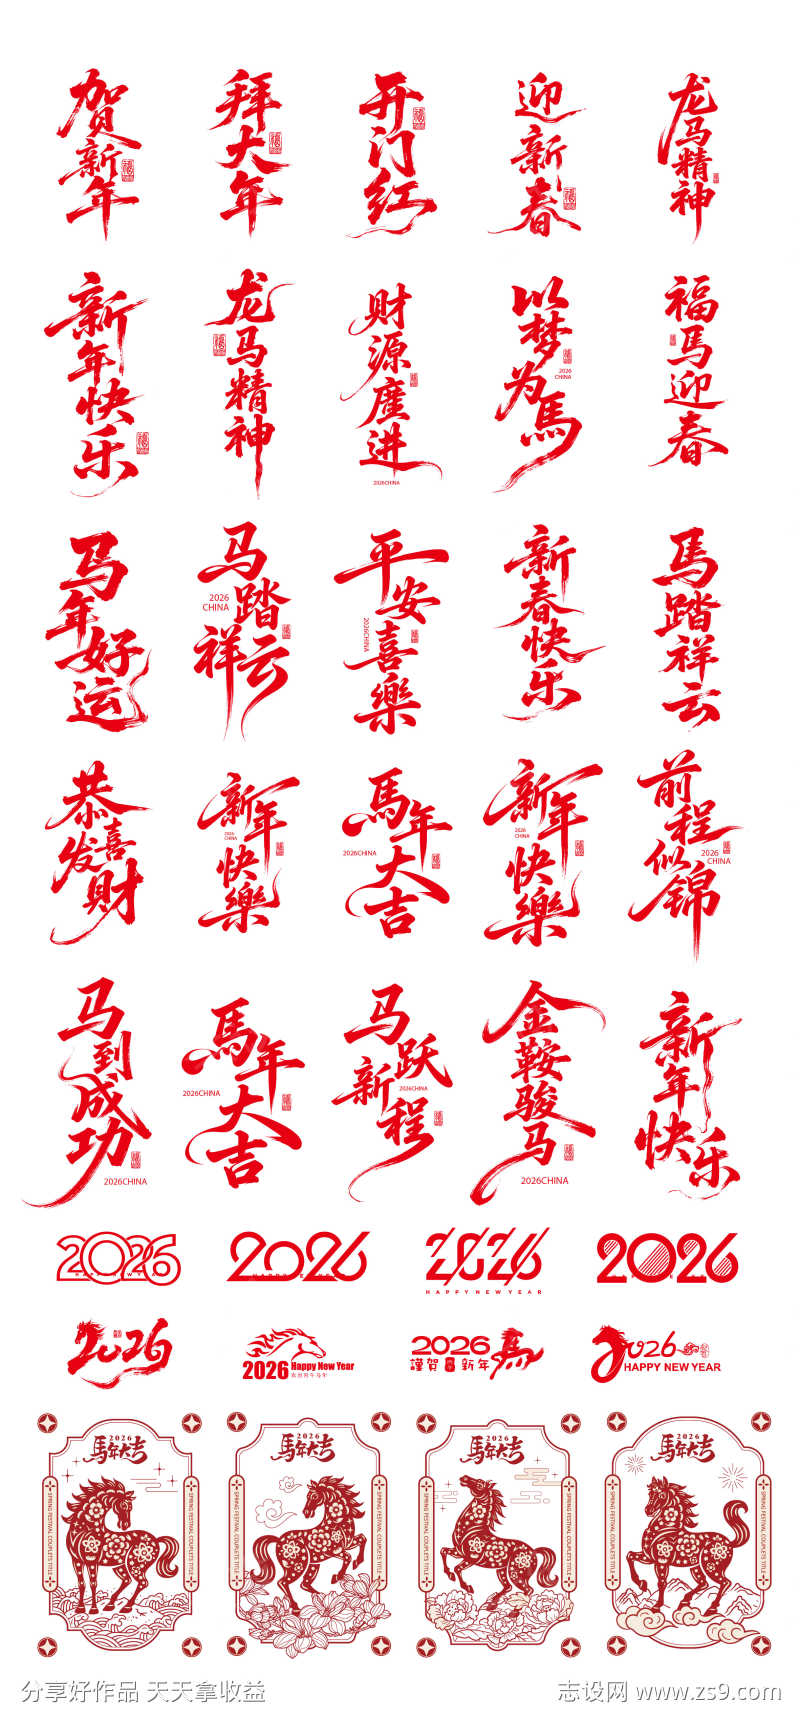 贺新年
拜大年
开门红
迎新春
龙马精神
新年快乐
龙马精神
财源广进
2026CHINA
以梦为馬
2026
CHINA
福馬迎春
马年好运
马踏祥云
2026
CHINA
平安喜樂
2026CHINA
新春快乐
馬踏祥云
恭喜发财
新年快樂
2026
CHINA
馬年大吉
2026CHINA
新年快樂
2026
CHINA
前程似锦
2026
CHINA
马到成功
2026CHINA
馬年大吉
2026CHINA
马跃新程
2026CHINA
金鞍骏马
2026CHINA
新年快乐
2026
HAPPY NEW YEAR
2026
2026
HAPPYNEWYEAR
2026
2026
2026 Happy New Year
2026
謹賀新年
馬
2026
HAPPY NEW YEAR
2026
馬年大吉
SPRING FESTIVAL COUPLETS TITLE
SPRING FESTIVAL COUPLETS TITLE
2026
馬年大吉
SPRING FESTIVAL COUPLETS TITLE
SPRING FESTIVAL COUPLETS TITLE
2026
馬年大吉
SPRING FESTIVAL COUPLETS TITLE
SPRING FESTIVAL COUPLETS TITLE
2026
馬年大吉
SPRING FESTIVAL COUPLETS TITLE
SPRING FESTIVAL COUPLETS TITLE
分享好作品 天天拿收益
志设网 www.zs9.com